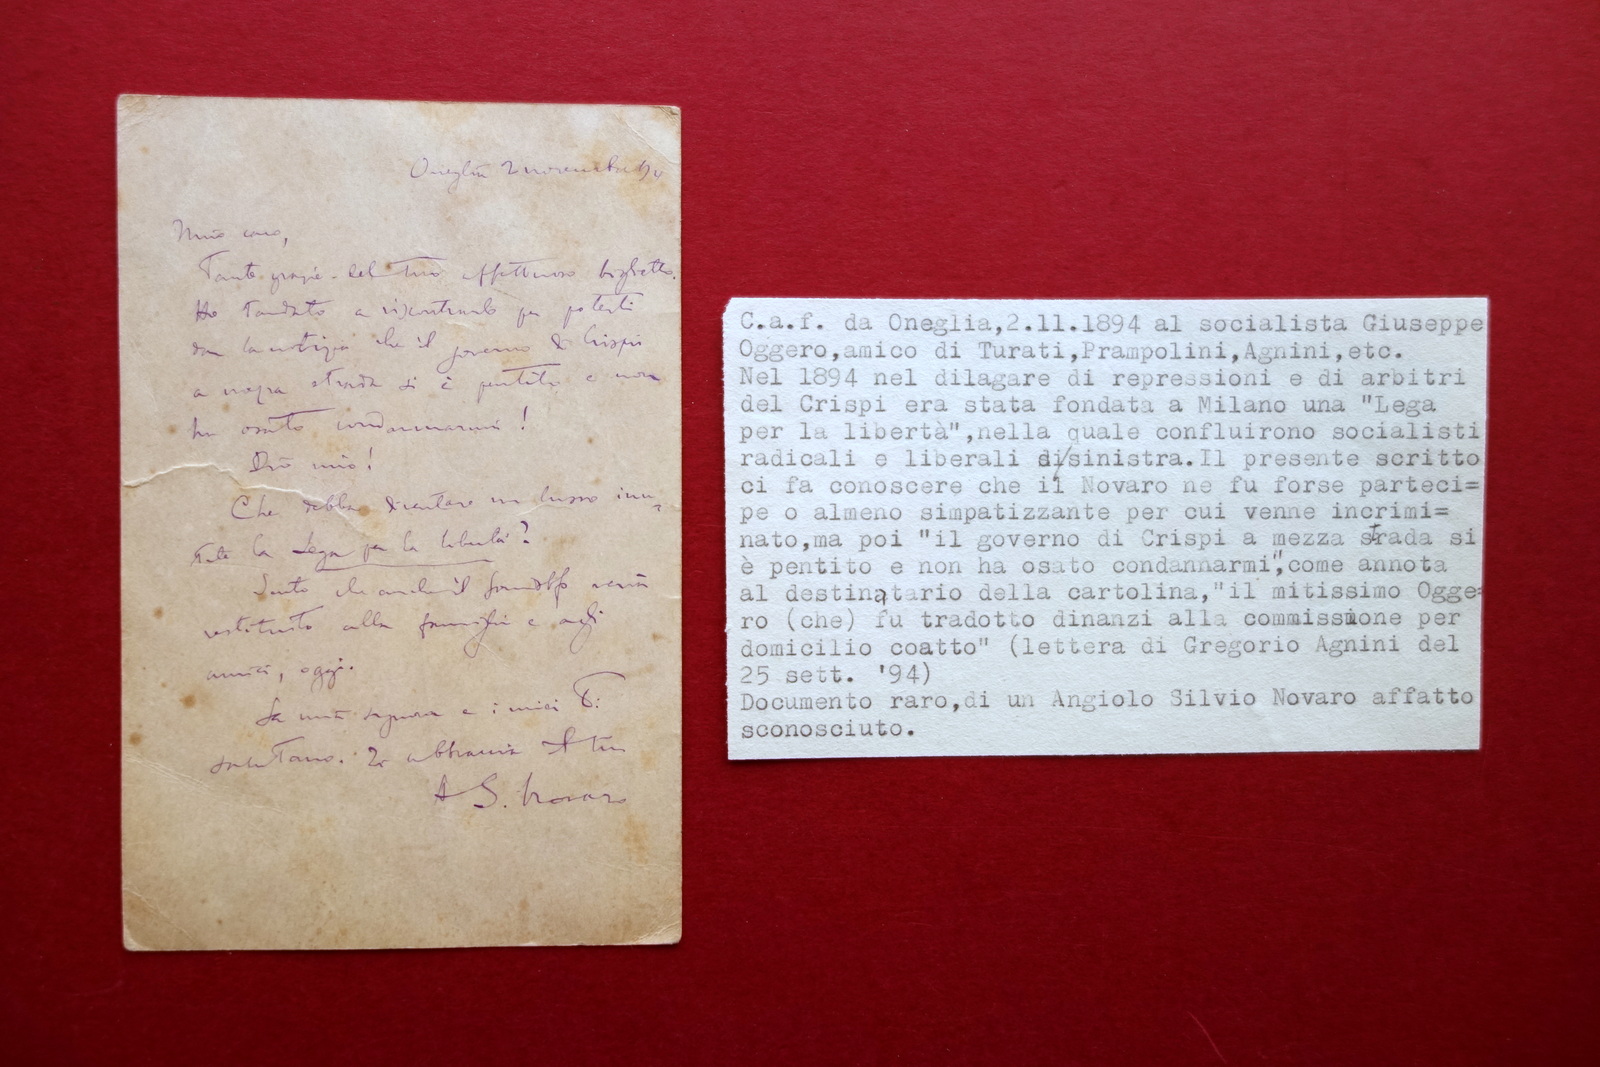 Oneglia 2 novembre 94
Mio caro,
Tante grazie del tuo affettuoso biglietto.
Ho tardato a riscontrarlo per poterti
dar la notizia che il governo di Crispi
a mezza strada si è pentito e non
ha osato condannarmi!
Dio mio!
Che debba diventare un lusso inu-
tile la Lega per la libertà?
Sento che anche il verrà
restituito alla famiglia e agli
amici, oggi.
La mia signora e i miei ti
salutano. Ti abbraccia il tuo
A S. Novaro
C.a.f. da Oneglia,2.11.1894 al socialista Giuseppe
Oggero,amico di Turati,Prampolini,Agnini,etc.
Nel 1894 nel dilagare di repressioni e di arbitri
del Crispi era stata fondata a Milano una "Lega
per la libertà",nella quale confluirono socialisti
radicali e liberali di/sinistra.Il presente scritto
ci fa conoscere che il Novaro ne fu forse parteci=
pe o almeno simpatizzante per cui venne incrimi=
nato,ma poi "il governo di Crispi a mezza strada si
è pentito e non ha osato condannarmi",come annota
al destinatario della cartolina,"il mitissimo Ogge=
ro (che) fu tradotto dinanzi alla commissione per
domicilio coatto" (lettera di Gregorio Agnini del
25 sett. '94)
Documento raro,di un Angiolo Silvio Novaro affatto
sconosciuto.